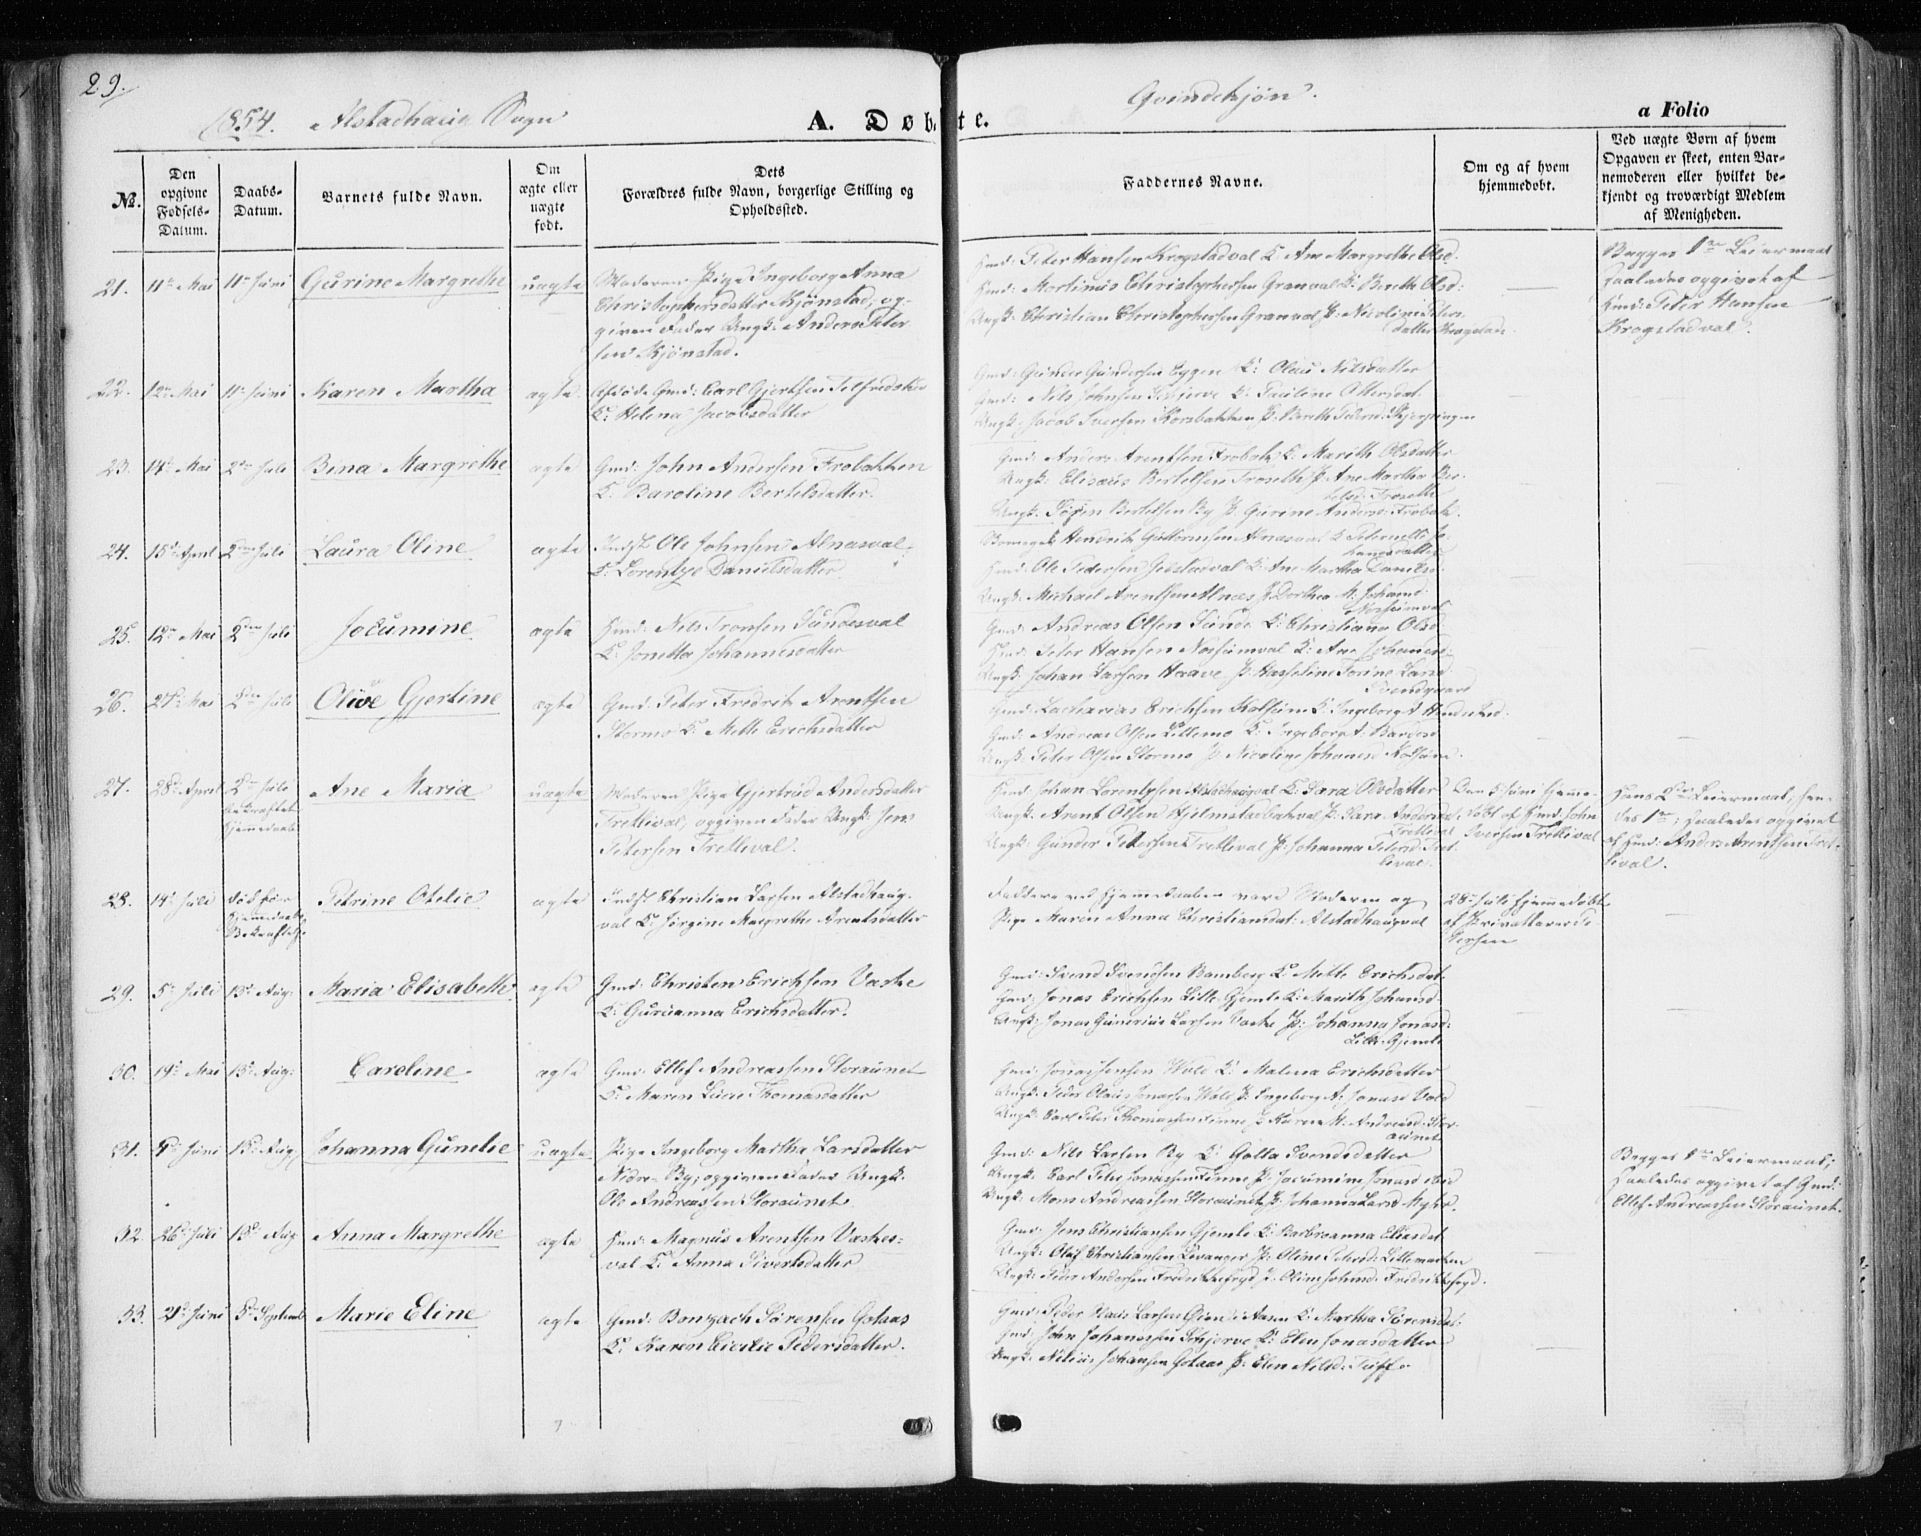 29.
1854. Alstadhaug Sogn
A. Døbte.
Qvindekjøn.
a Folio
№.
Den opgivne Fødsels-Datum.
Daabs-Datum.
Barnets fulde Navn.
Om ægte eller uægte født.
Dets Forældres fulde Navn, borgerlige Stilling og Opholdssted.
Faddernes Navne.
Om og af hvem hjemmedøbt.
Ved uægte Børn af hvem Opgaven er skeet, enten Barnemoderen eller hvilket bekjendt og troværdigt Medlem af Menigheden.
21. 11te Mai 11te Juni Gurine Margrethe uægte Moderen Pige Ingeborg Anna
Christophersdatter Kjønstad; op-
given Fader Ungk: Anders Peter
sen Kjønstad.
Hmd: Peter Hansen Krogstadval K. Ane Margrethe Olsd.
Hmd: Martinus Christophersen Granval K: Berethe Olsd:
Ungk: Christian Christophersen Granval P: Nicoline Peters
datter Krogstad.
Begges 1ste Leiermaal
saaledes opgivet af
Hmd: Peter Hansen
Krogstadval.
22. 12te Mai 11te Juni Karen Martha ægte Gmd: Carl Gjertsen
K: Helena Jacobsdatter
Gmd: Gunder Gundersen Eggen K: Olava Nilsdatter
Gmd: Nils Johnsen Schjerve K. Pauline Ottersdat.
Ungk: Jacob Iversen Korsbakken P. Berith Peders:
23. 14de Mai 2den Juli Bina Margrethe ægte Gmd: John Andersen Frobakken
K. Baroline Bertelsdatter.
Gmd: Anders Arentsen Frobak K. Marith Olsdatter
Ungk: Elisæus Bertelsen Troseth P: Ane Martha Ber-
telsd: Troseth
Ungk: Bertelsen By P. Gurine Andersd: Frobak.
24. 15de April 2den Juli Laura Oline ægte Indst Ole Johnsen Alnæsval.
K. Lorentze Danielsdatter
Hendrik Guttormsen Alnæsval K. Peternelle Jo-
hannesdatter
Hmd: Ole Pedersen K: Ane Martha Danielsd.
Ungk: Michael Arentsen Alnæs P. Dorthea M: Johansd.
25. 12te Mai 2den Juli Jocumine ægte Hmd: Nils Tronsen Sundesval
K. Jonetta Johannesdatter
Gmd: Andreas Olsen Sunde K: Christiane Olsd.
Hmd: Peter Hansen K: Ane Johansd:
Ungk: Johan Larsen Haave P: Larsd
26. 27de Mai 2den Juli Olive Gjertine ægte Gmd: Peter Fredrik Arentsen
Stormo K. Mette Erichsdatter
Gmd: Zacharias Erichsen K. Ingeborg A
Gmd: Andreas Olsen Lillemo K: Ingeborg A: Bardosd
Ungk: Peter Olsen Stormo P: Nicoline Johansd
27. 28de April 2den Juli
bekræftet
hjemmedaab Ane Maria uægte Moderen Pige Gjertrud Andersdatter
Tretlival, opgiven Fader Ungk: Jens
Petersen Tretleval.
Hmd: Johan Lorentzen Alstadhaugval K: Sara Olsdatter
Ungk. Arent Olsen Hjelmstadbakval P: Sara Andersd.
Tretleval
Ungk: Gunder Petersen Tretleval P: Johanna Petersd: Tret-
leval.
Den 5 Juni hjemme-
døbt af Hmd: John
Iversen Tretlival
Hans 2den Leiermaal, hen-
des 1ste; saaledes opgivet
af Hmd: Anders Arentsen Tret-
leval.
28. 14de Juli død før
Hjemmedaabs
Bekræftelse Petrine Otelie ægte Indst Christian Larsen Alstadhaug-
val K. Jørgine Margrethe Arentsdatter
Faddere ved Hjemmedaaben vare Moderen og
Pige Maren Anna Christiansdat: Alstadhaugval
28de Juli hjemmedøbt
af Privatlærer Pe-
tersen
29. 5te Juli 13de Aug: Maria Elisabeth ægte Gmd: Christen Erichsen Vaske
K: Gurianna Erichsdatter.
Gmd: Svend Svendsen Bamberg K. Mette Erichsdat.
Gmd: Jonas Erichsen Lille Gjemle K: Marith Johansd.
Ungk: Jonas Gunerius Larsen Vaske P: Johanna Jonasd:
Lille Gjemle
30. 19de Mai 13de Aug: Caroline ægte Gmd: Ellef Andreassen Storaunet
K: Maren Lucie Thomasdatter
Gmd: Jonas Jensen Wold K: Malena Erichsdatter
Ungk. Peder Olaus Jonassen Wold P. Ingeborg A: Jonasd Vold
Ungk: Carl Peter Thomassen P. Karen M. Andreasd: Stor-
aunet
31. Juni 13de Aug: Johanna Gunelie uægte Pige Ingeborg Martha Larsdatter
Nedre By; opgiven Fader Ungk:
Ole Andreassen Storaunet.
Gmd: Nils Larsen By K Golla Svendsdatter
Ungk. Carl Peter Jonassen P: Jocumine Jonasd
Ungk: Mons Andreassen Storaunet P. Johanna Larsd Myhr.
Begges 1ste Leiermaal;
saaledes opgivet af Gmd:
Ellef Andreassen Storaunet.
32. 26de Juli 13de Aug Anna Margrethe ægte Hmd: Magnus Arentsen Vaskes-
val K. Anna Sivertsdatter
Gmd: Jens Christiansen Gjemle K: Barbroanna Eliasdat
Ungk: Oluf Christiansen Levanger P: Oline Petersd: Lillemarken
Ungk: Peder Andersen Fredrikkefryd P. Olina Johansd: Fredrikkefryd.
33. 21de Juni 3de Septemb Marie Eline ægte Gmd: Bontzach Sørensen Gotaas
K: Karen Cicelie Pedersdatter.
Gmd: Peder Klaus Larsen Aasen K: Martha Sørensdat:
Gmd: John Johannessen Schjerve K: Elen Jonasdatter
Ungk: Nilius Johansen Gotaas P: Elen Nilsd: